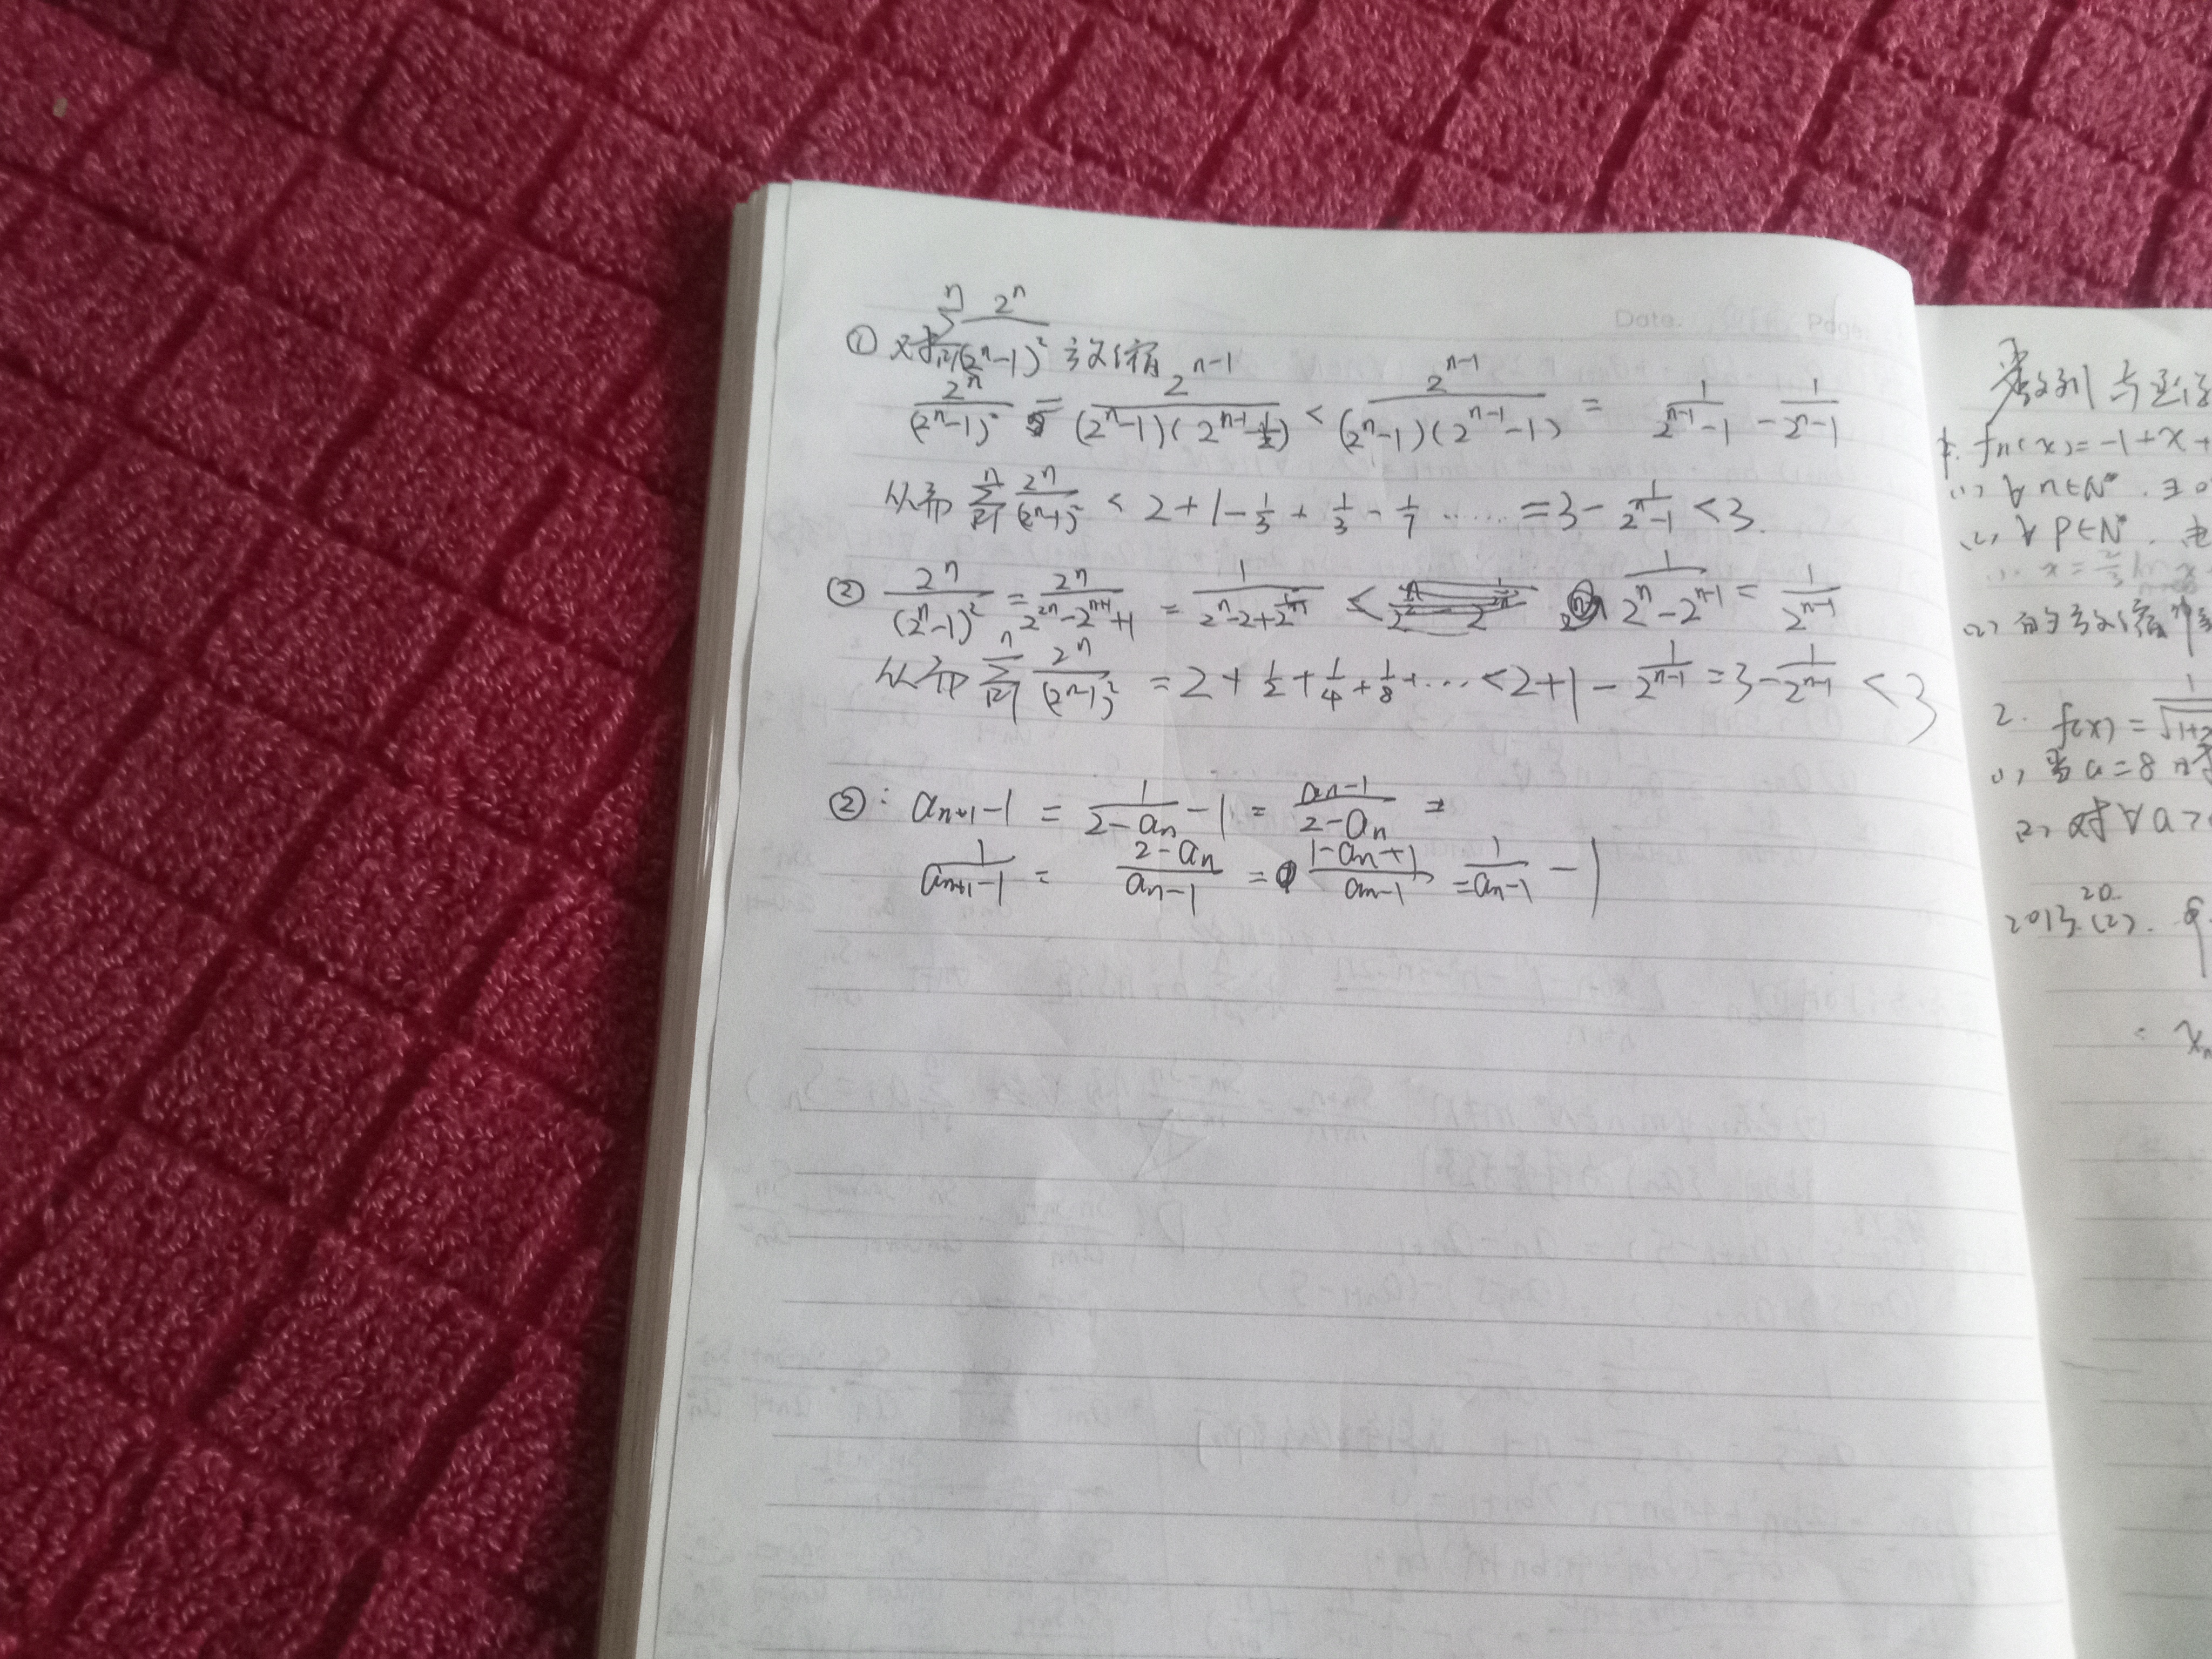 Date. Page.
① 对 \sum_{i=1}^{n} \frac{2^n}{(2^n-1)^2} 放缩
\frac{2^n}{(2^n-1)^2} = \frac{2^{n-1}}{(2^n-1)(2^{n-1}-\frac{1}{2})} < \frac{2^{n-1}}{(2^n-1)(2^{n-1}-1)} = \frac{1}{2^{n-1}-1} - \frac{1}{2^n-1}
从而 \sum_{i=1}^{n} \frac{2^n}{(2^n-1)^2} < 2+1-\frac{1}{3}+\frac{1}{3}-\frac{1}{7}...... = 3-\frac{1}{2^n-1} < 3.
② \frac{2^n}{(2^n-1)^2} = \frac{2^n}{2^{2n}-2^{n+1}+1} = \frac{1}{2^n-2+\frac{1}{2^n}} < \frac{1}{2^n-2^{n-1}} = \frac{1}{2^{n-1}}
从而 \sum_{i=1}^{n} \frac{2^n}{(2^n-1)^2} = 2+\frac{1}{2}+\frac{1}{4}+\frac{1}{8}+... < 2+1-\frac{1}{2^{n-1}} = 3-\frac{1}{2^{n-1}} < 3
②: a_{n+1}-1 = \frac{1}{2-a_n}-1 = \frac{a_n-1}{2-a_n} =
\frac{1}{a_{n+1}-1} = \frac{2-a_n}{a_n-1} = \frac{1-a_n+1}{a_n-1} = \frac{1}{a_n-1}-1
数列与
f_n(x)=-1+x+
(1) ∀n∈N*.
(2) ∀P∈N*.
2. f(x)=\frac{1}{\sqrt{1+
(1) 当a=8时
(2) 对∀a>
20.
2013.(2).